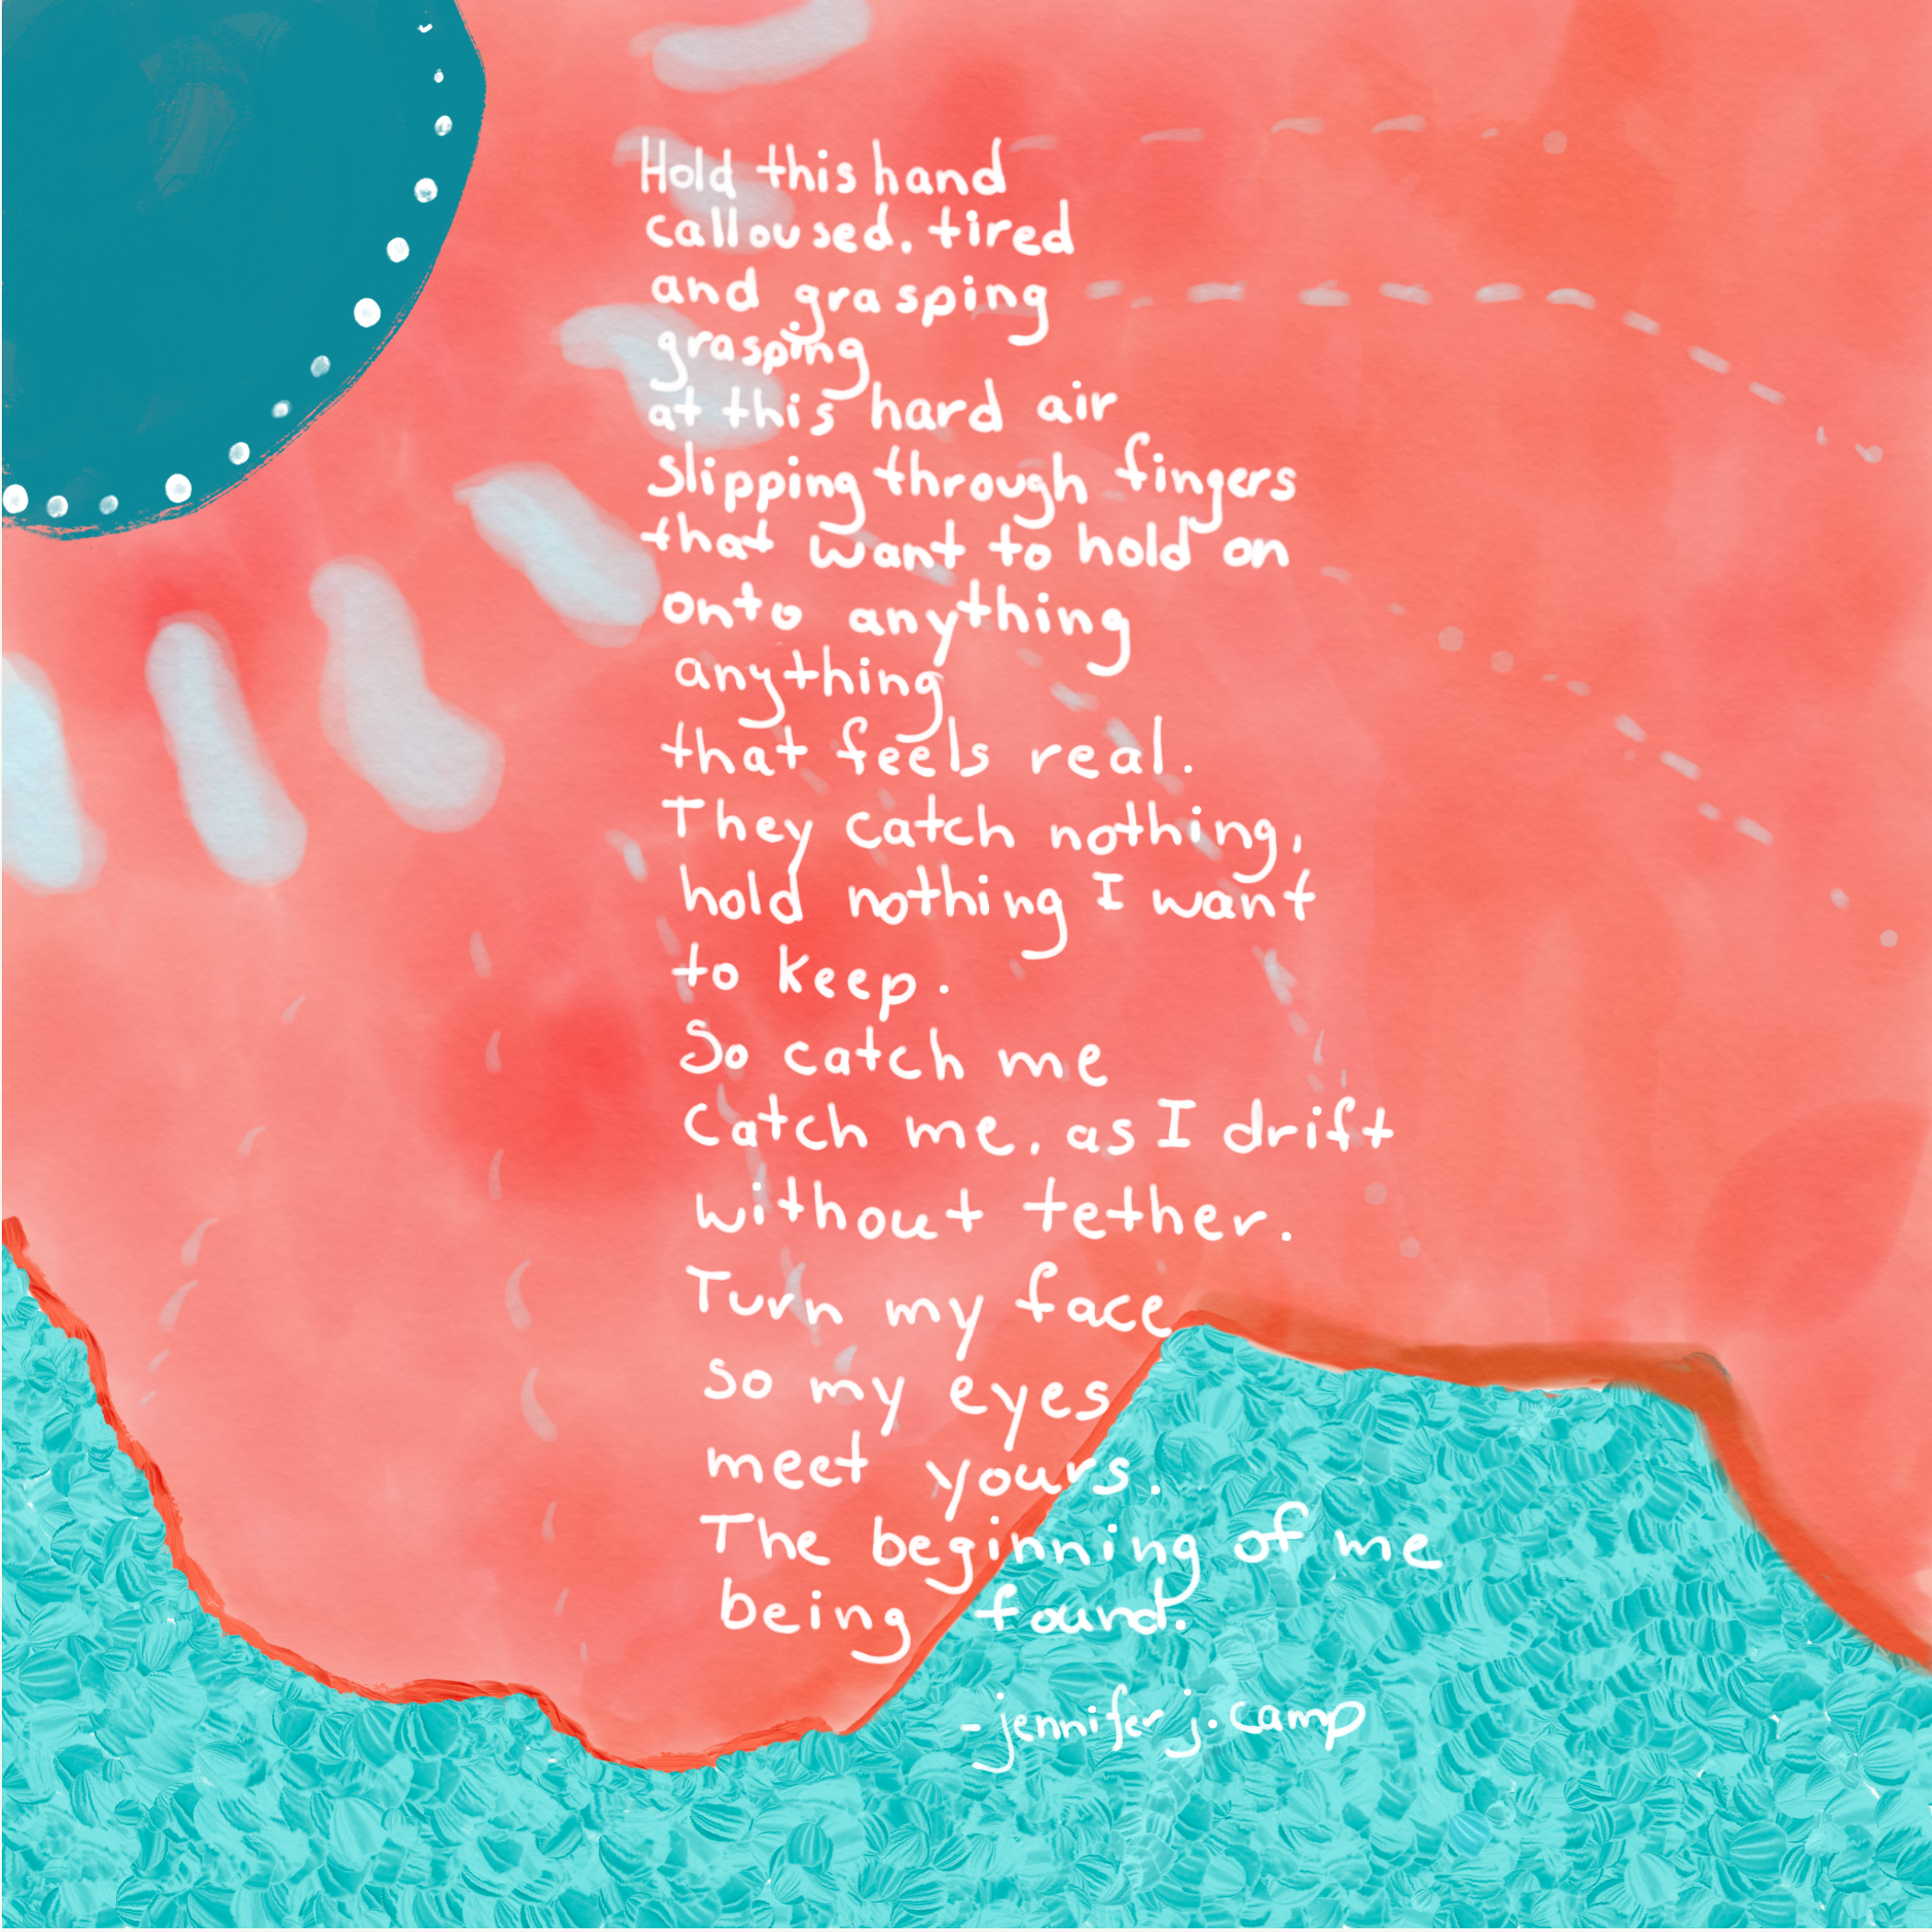 Hold this hand
calloused, tired
and grasping
grasping
at this hard air
slipping through fingers
that want to hold on
onto anything
anything
that feels real.
They catch nothing,
hold nothing I want
to keep.
So catch me
Catch me, as I drift
without tether.
Turn my face
so my eyes
meet yours.
The beginning of me
being found.
- jennifer j. camp